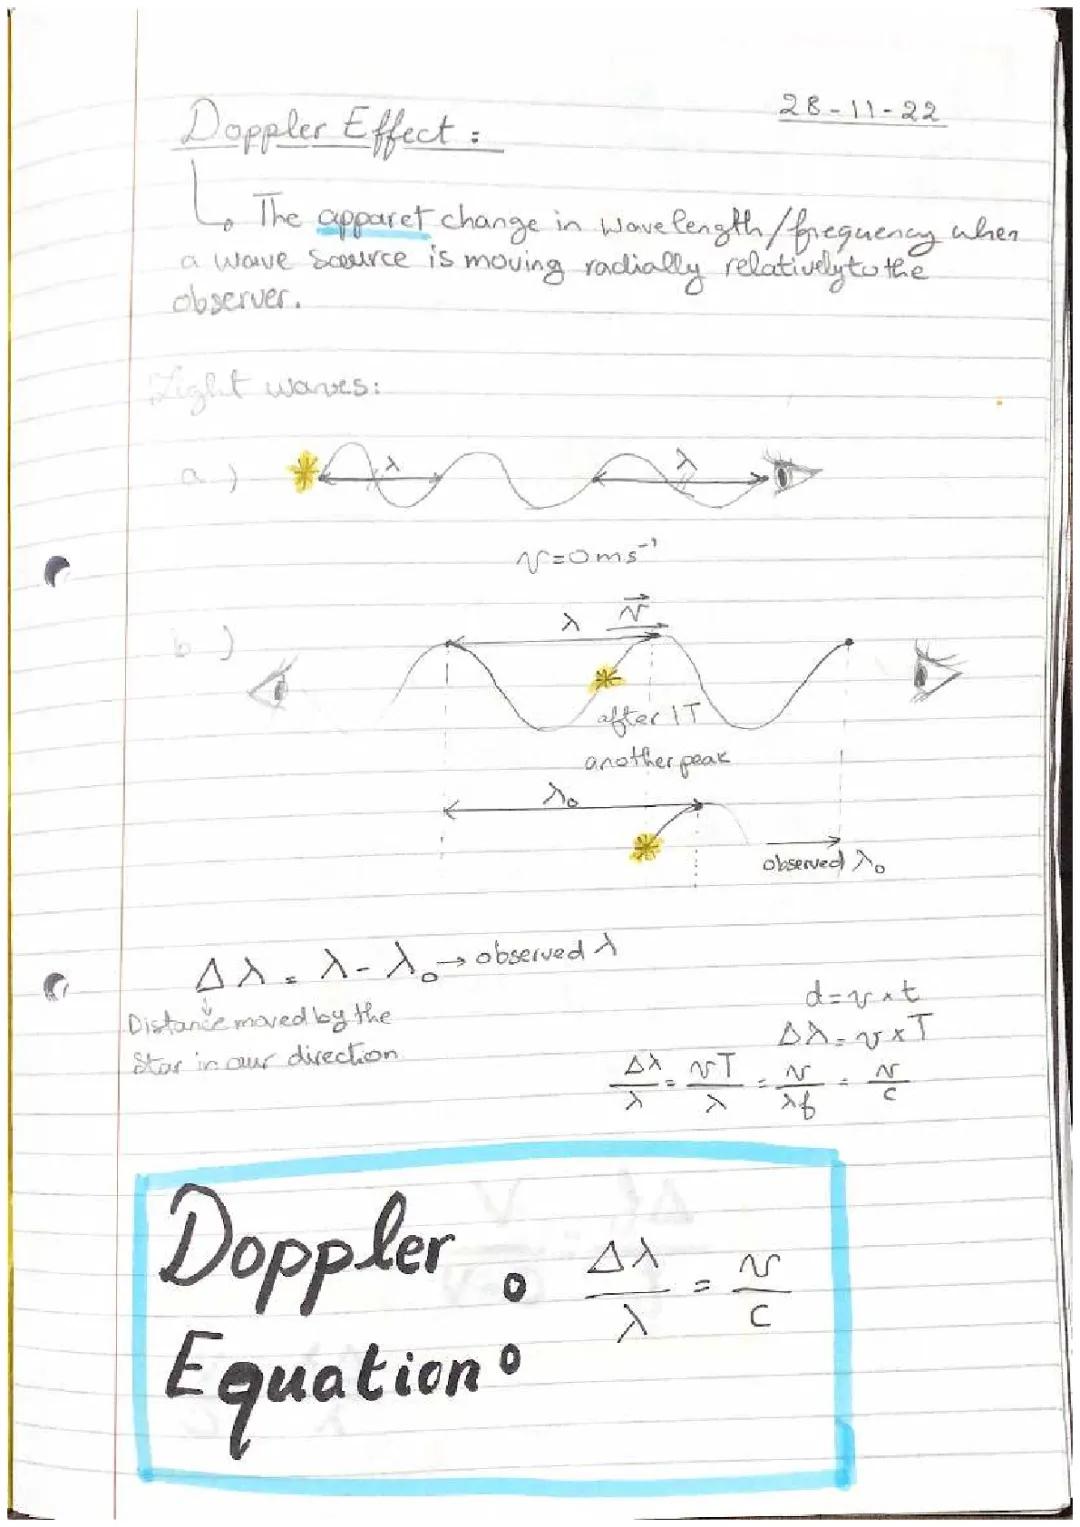 28-11-22
Doppler Effect :
The apparet change in wavelength/frequency when
a wave source is moving radially relatively to the
observer.
Light waves:
a.)
λ
λ
v=0ms⁻¹
b.)
λ
v⃗
after 1T
another peak
λ₀
observed λ₀
Δλ = λ - λ₀ → observed λ
Distance moved by the
Star in our direction
d = v × t
Δλ = v × T
Δλ/λ = vT/λ = v/λf = v/c
Doppler
Equation:
Δλ/λ = v/c